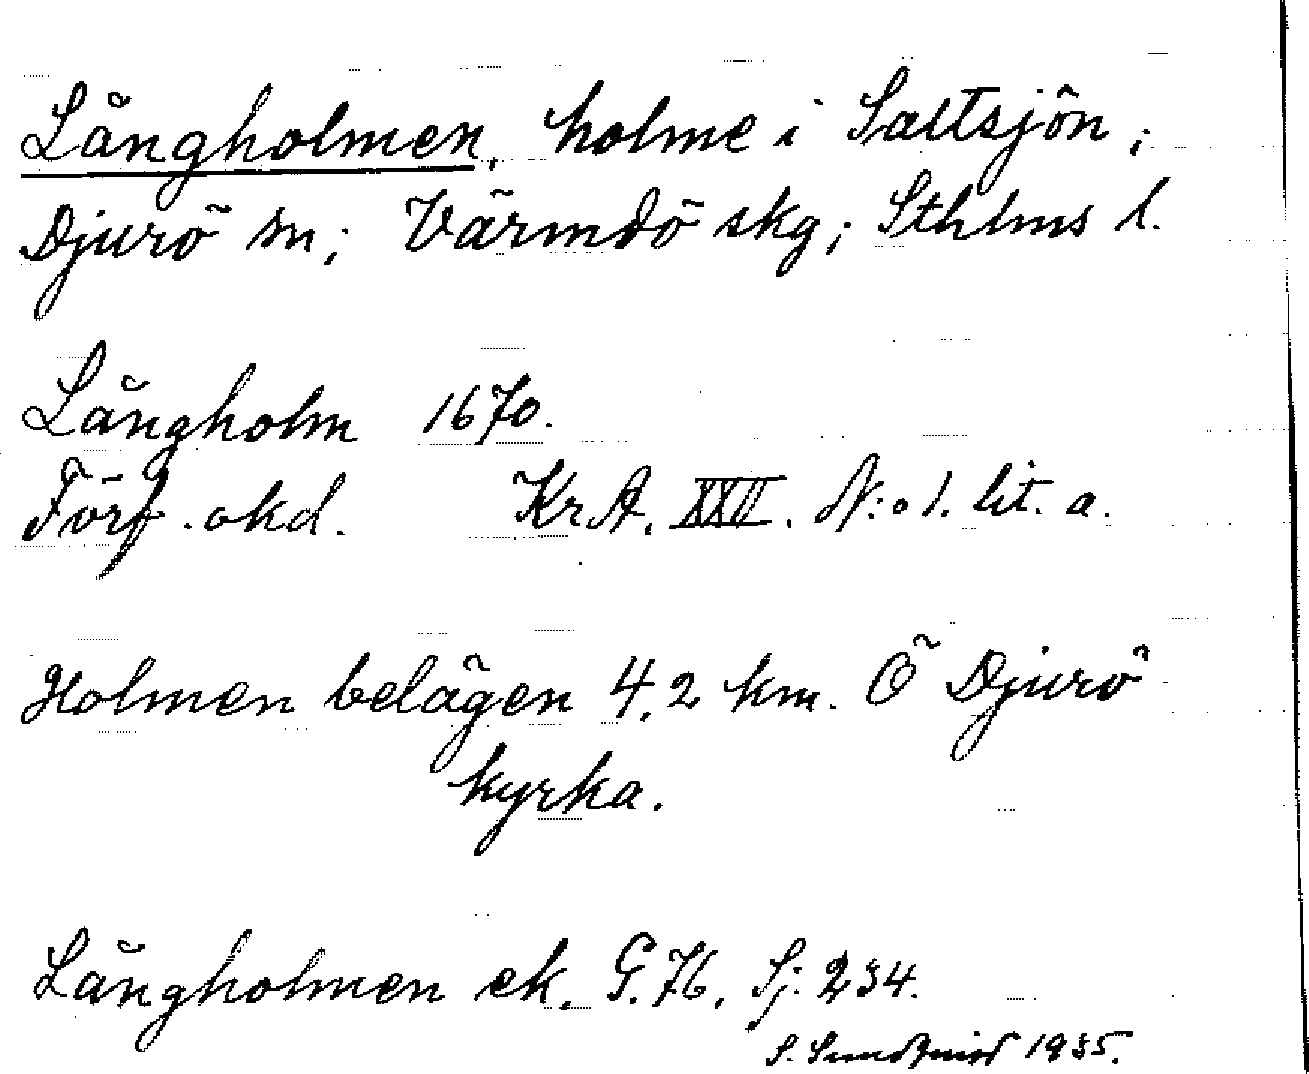 Långholmen, holme i Saltsjön;
Djurö sn; Värmdö skg; Sthlms l.
Långholm 1670.
Förf. okd. Kr A. XXII. N:o 1. lit. a.
Holmen belägen 4,2 km. Ö Djurö
kyrka.
Långholmen ek. G. 76. Sj: 234.
S. Sundqvist 1935.